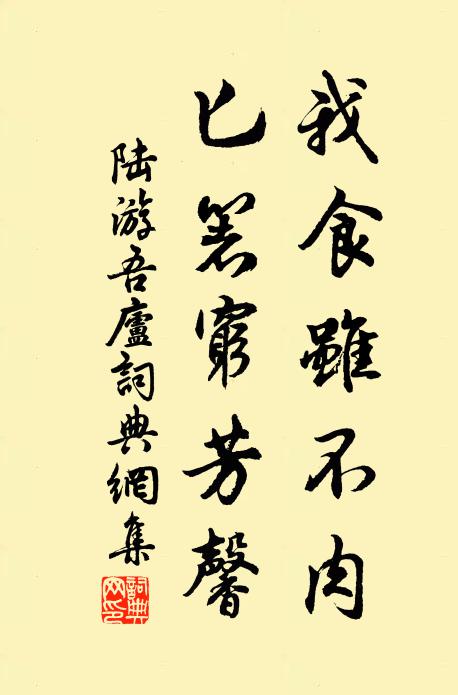 我食雖不肉
匕箸窮芳馨
陸游吾廬詞典網集
詞典网印